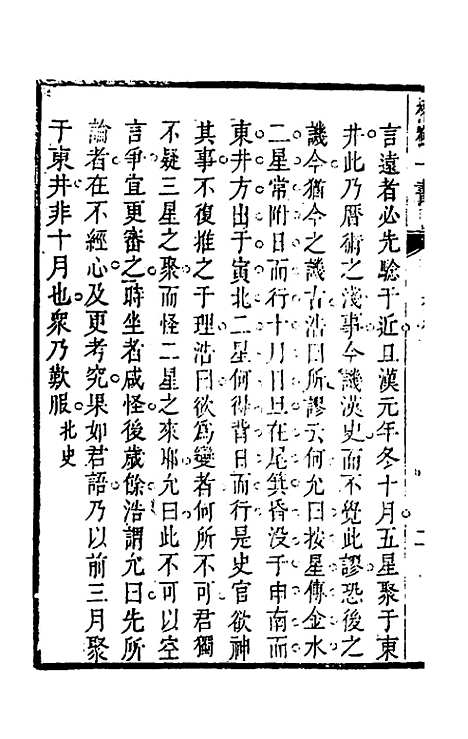 言遠者必先驗于近且漢元年冬十月五星聚于東
井此乃曆術之淺事今譏漢史而不覺此謬恐後之
譏今猶今之譏古浩曰所謬云何允曰按星傳金水
二星常附日而行十月日旦在尾箕昏没于申南而
東井方出于寅北二星何得背日而行是史官欲神
其事不復推之于理浩曰欲爲變者何所不可君獨
不疑三星之聚而怪二星之來耶允曰此不可以空
言爭宜更審之時坐者咸怪後歲餘浩謂允曰先所
論者在不經心及更考究果如君語乃以前三月聚
于東井非十月也衆乃歎服北史